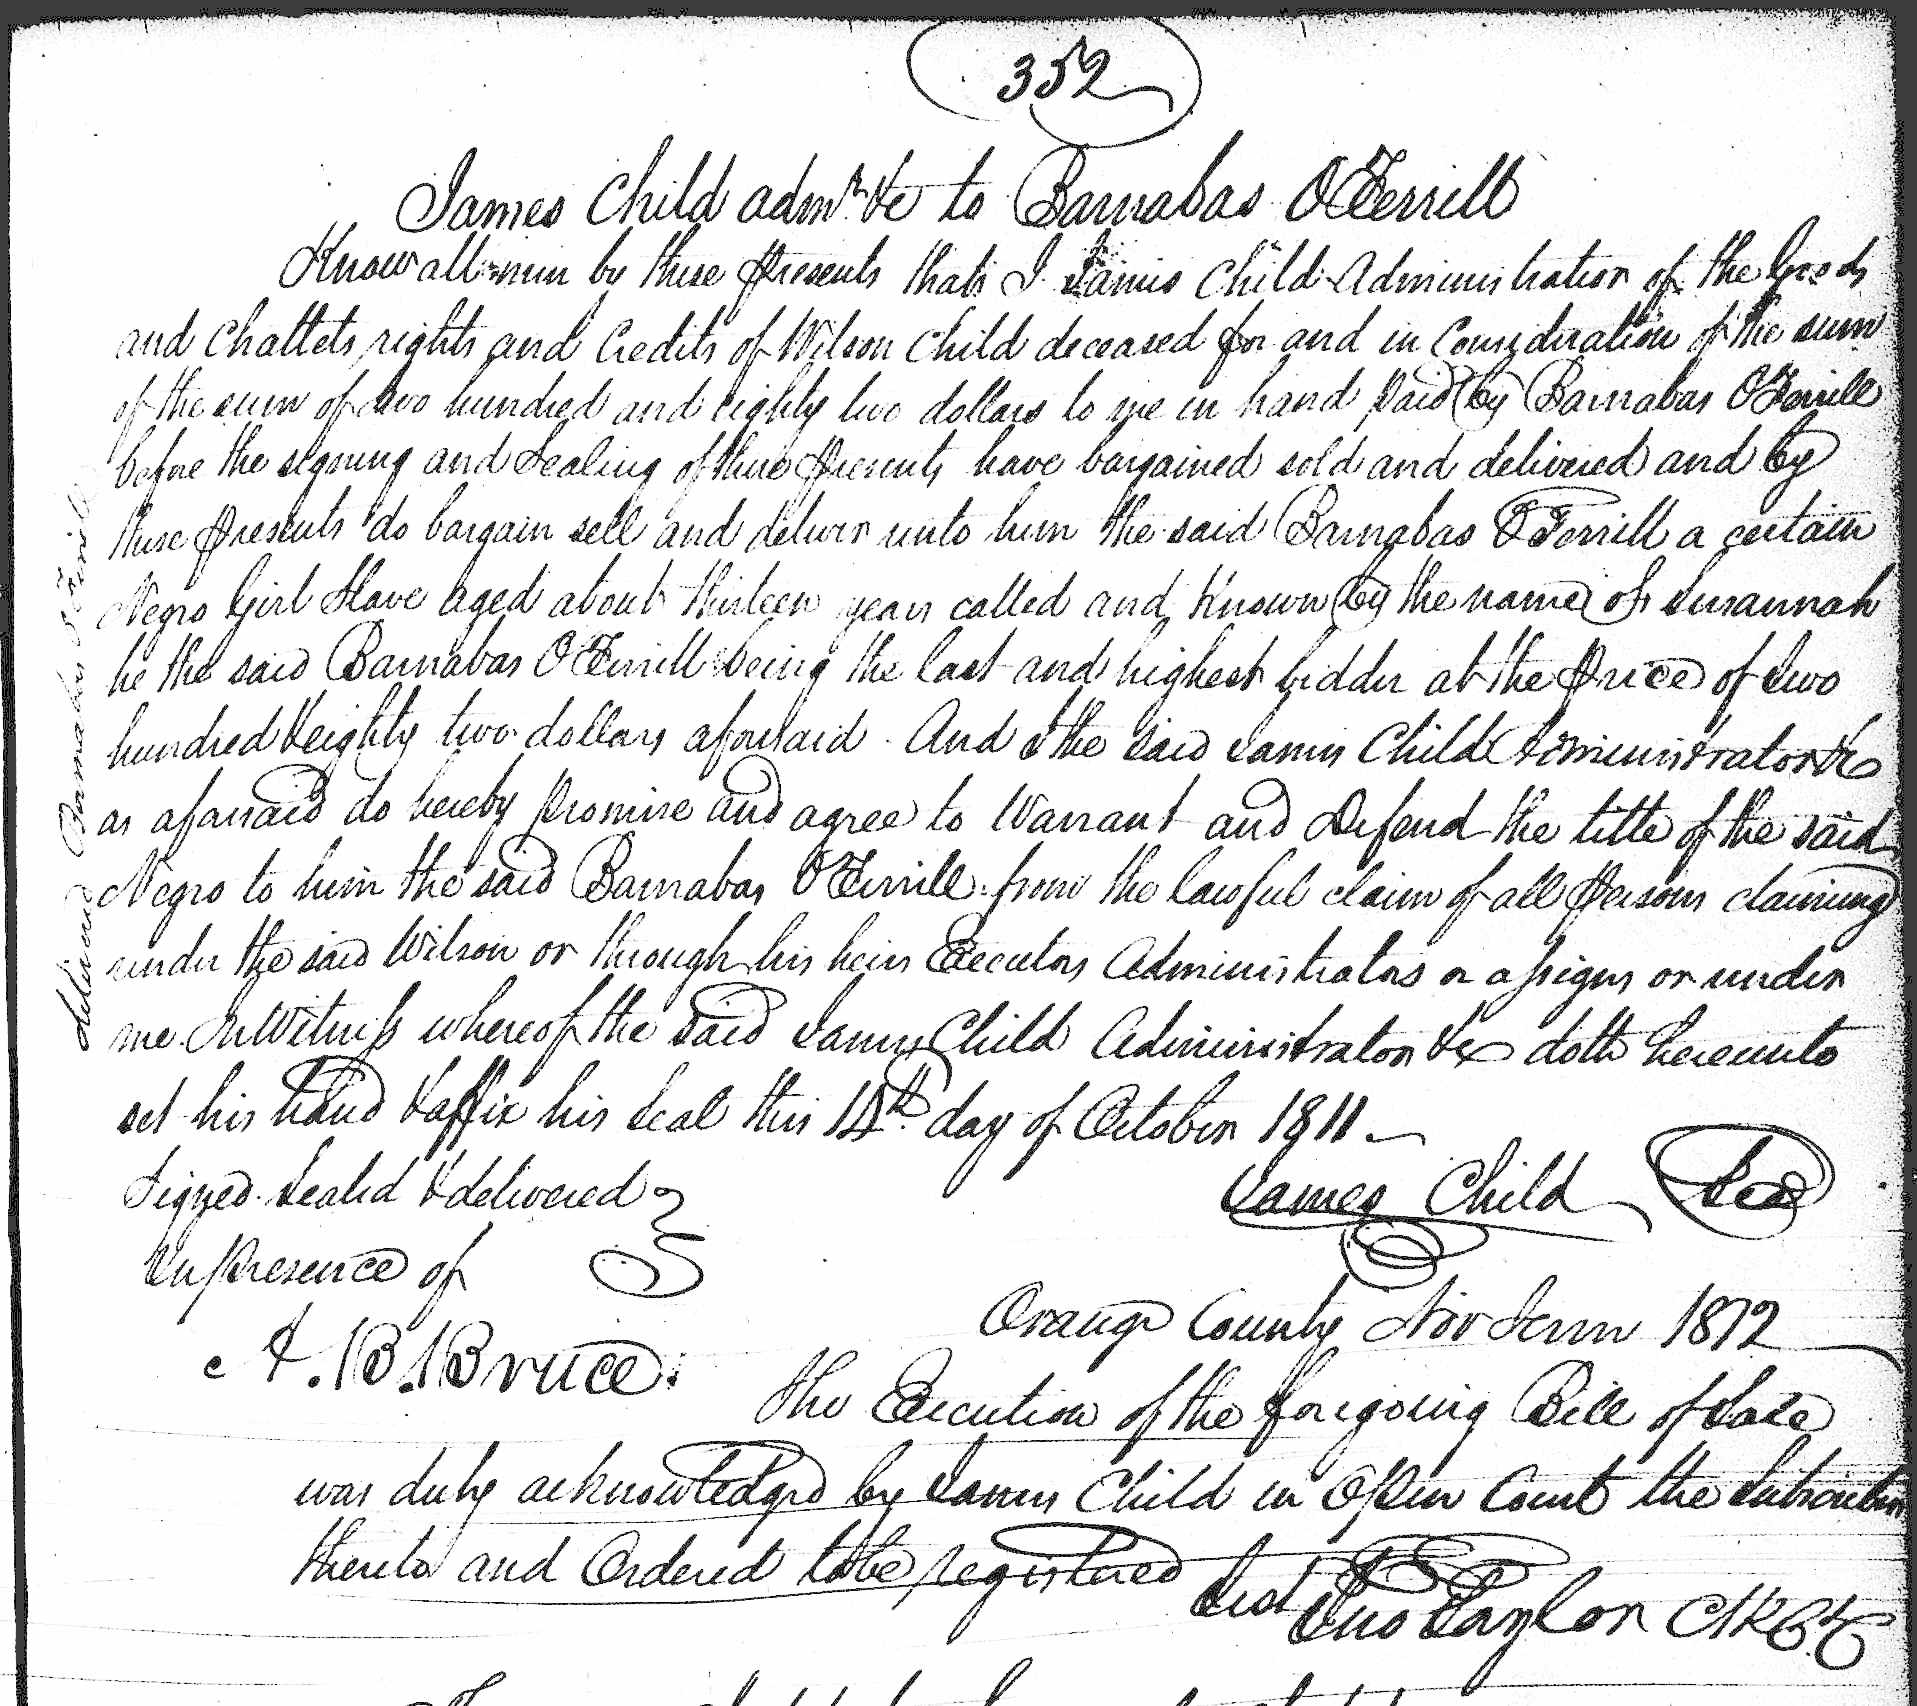 352
James Child adm.r &c to Barnabas O'Ferrill
Know all men by these presents that I James Child Administration of the Goods
and Chattets, rights and Credits of Wilson Child deceased for and in Consideration of the sum
of the sum of two hundred and eighty two dollars to me in hand paid by Barnabas O'Ferrill
before the signing and Sealing of these presents have bargained sold and delivered and by
these presents do bargain sell and deliver unto him the said Barnabas O'Ferrill a certain
Negro Girl Slave aged about thirteen years called and Known by the name of Susannah
he the said Barnabas O'Ferrill being the last and highest bidder at the price of two
hundred & eighty two dollars aforesaid. And I the said James Child Administrator &c
as aforesaid do hereby promise and agree to Warrant and Defend the title of the said
Negro to him the said Barnabas O'Ferrill from the lawful claim of all persons claiming
under the said Wilson or through his heirs Executors Administrators or assigns or under
me In Witness whereof the said James Child Administrator &c doth hereunto
set his hand & affix his Seal this 14th day of October 1811
Signed Sealed & delivered
In presence of
James Child Seal
A. B. Bruce
Orange County Nov Term 1812
The Execution of the foregoing Bill of Sale
was duly acknowledged by James Child in Open Court the
thereto and Ordered to be registered
Test Jno Taylor
delivered Barnabas O'Ferrill